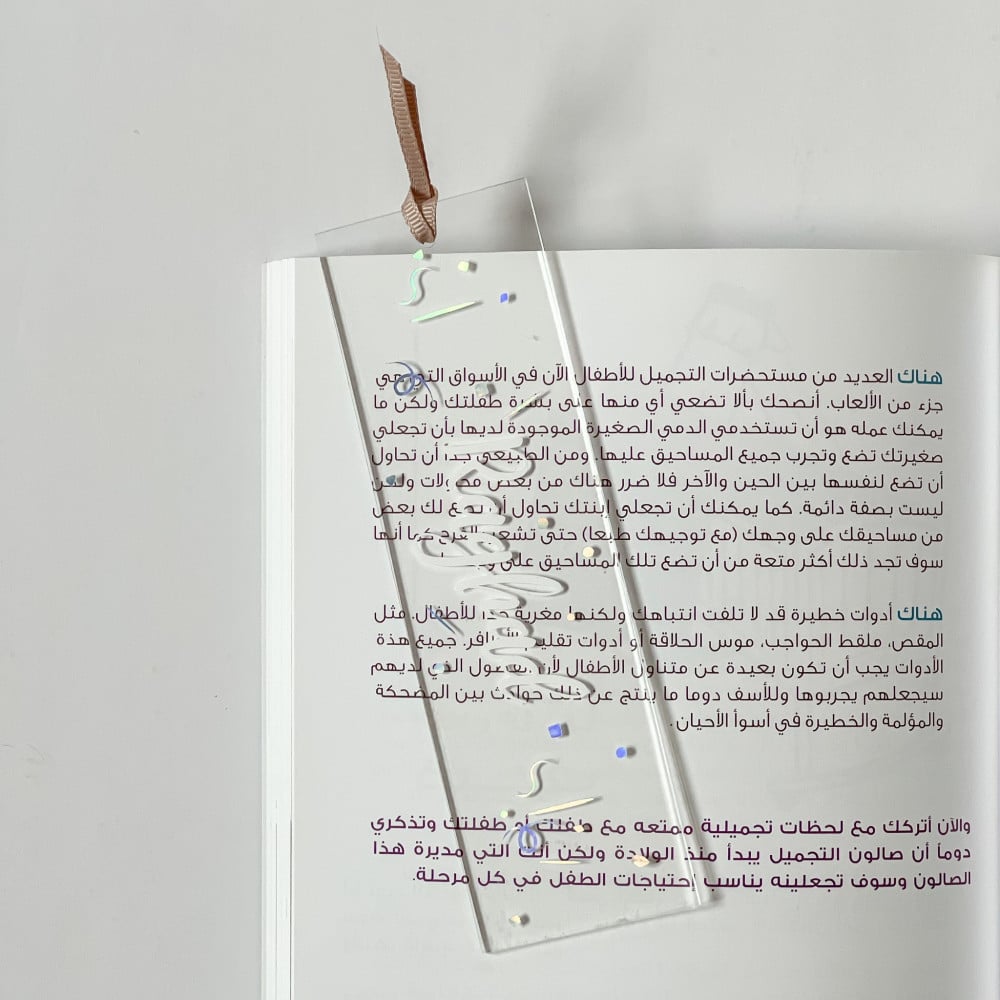 هناك العديد من مستحضرات التجميل للأطفال الآن في الأسواق التي هي
جزء من الألعاب. أنصحك بألا تضعي أي منها على بشرة طفلتك ولكن ما
يمكنك عمله هو أن تستخدمي الدمي الصغيرة الموجودة لديها بأن تجعلي
صغيرتك تضع وتجرب جميع المساحيق عليها. ومن الطبيعي جداً أن تحاول
أن تضع لنفسها بين الحين والآخر فلا ضرر هناك من بعض محاولات ولكن
ليست بصفة دائمة. كما يمكنك أن تجعلي إبنتك تحاول أن تضع لك بعض
من مساحيقك على وجهك (مع توجيهك طبعا) حتى تشعر بالفرح كما أنها
سوف تجد ذلك أكثر متعة من أن تضع تلك المساحيق على
هناك أدوات خطيرة قد لا تلفت انتباهك ولكنها مغرية جدا للأطفال. مثل
المقص، ملقط الحواجب، موس الحلاقة أو أدوات تقليم الأظافر. جميع هذة
الأدوات يجب أن تكون بعيدة عن متناول الأطفال لأن الفضول الذي لديهم
سيجعلهم يجربوها وللأسف دوما ما ينتج عن ذلك حوادث بين المضحكة
والمؤلمة والخطيرة في أسوأ الأحيان.
والآن أتركك مع لحظات تجميلية ممتعه مع طفلك أو طفلتك وتذكري
دوماً أن صالون التجميل يبدأ منذ الولادة ولكن أنت التي مديرة هذا
الصالون وسوف تجعلينه يناسب إحتياجات الطفل في كل مرحلة.